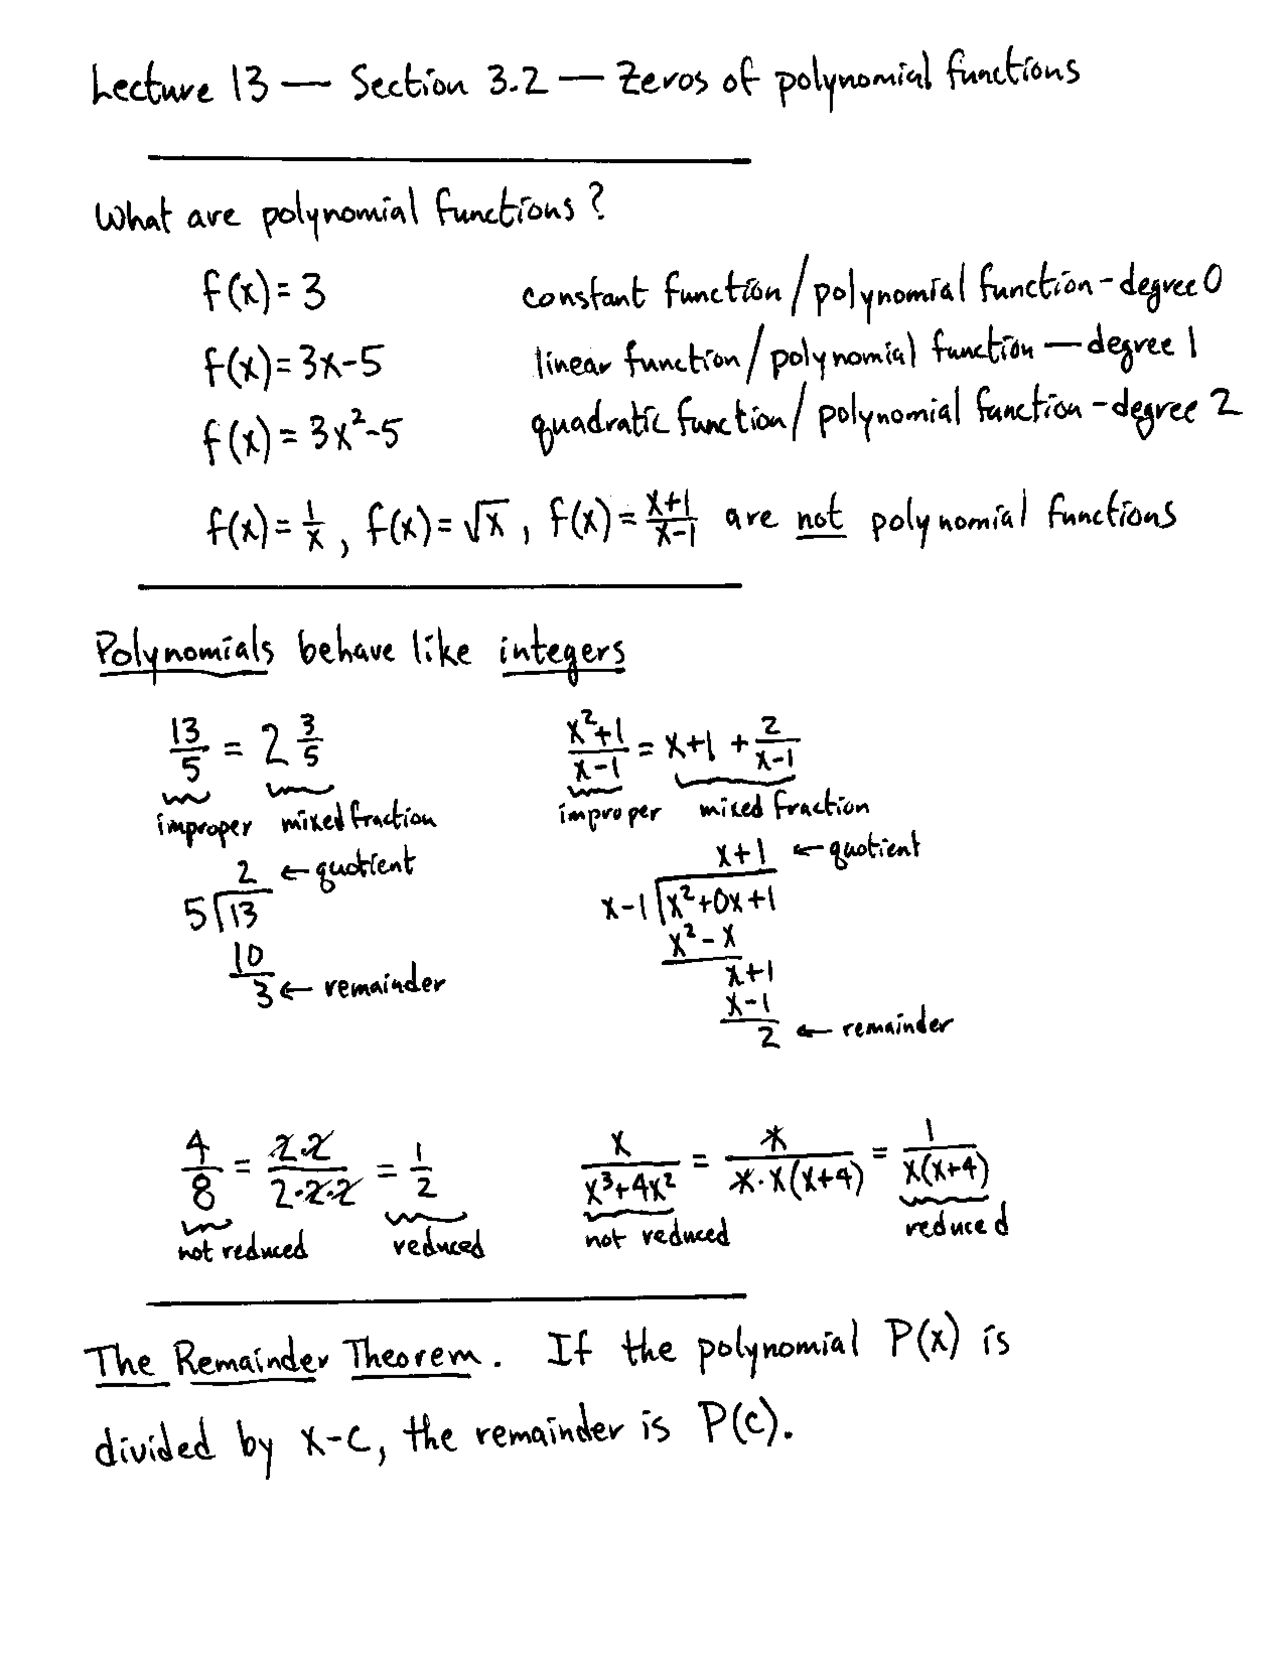 Lecture 13 — Section 3.2 — Zeros of polynomial functions
What are polynomial functions?
f(x) = 3 constant function / polynomial function - degree 0
f(x) = 3x-5 linear function / polynomial function — degree 1
f(x) = 3x²-5 quadratic function / polynomial function - degree 2
f(x) = 1/x, f(x) = √x, f(x) = (x+1)/(x-1) are not polynomial functions
Polynomials behave like integers
13/5 = 2 3/5
improper mixed fraction
2 ← quotient
5 √13
10
3 ← remainder
(x²+1)/(x-1) = x+1 + 2/(x-1)
improper mixed fraction
x+1 ← quotient
x-1 √x²+0x+1
x²-x
x+1
x-1
2 ← remainder
4/8 = (2·2)/(2·2·2) = 1/2
not reduced reduced
x/(x³+4x²) = x/(x·x(x+4)) = 1/(x(x+4))
not reduced reduced
The Remainder Theorem. If the polynomial P(x) is
divided by x-c, the remainder is P(c).